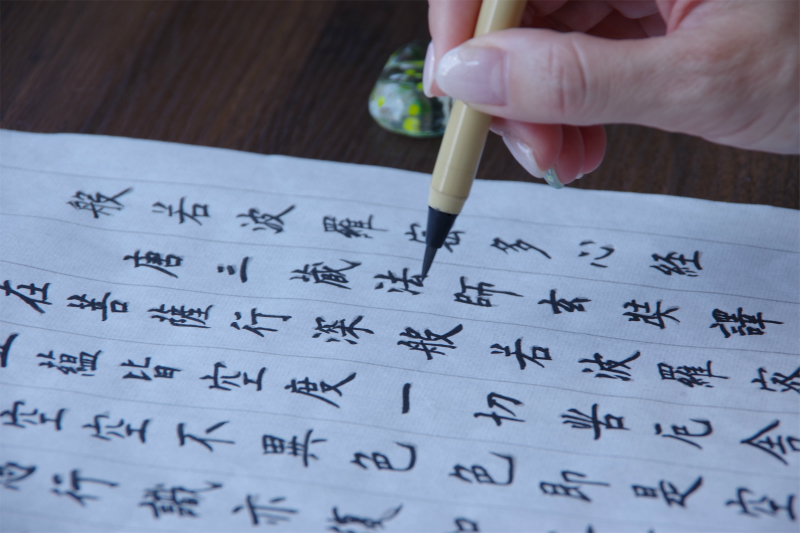 般若波羅蜜多心経
唐三蔵法師玄奘譯
在菩薩行深般若波羅蜜
蘊皆空度一切苦厄舍
空空不異色色即是空
行識亦復